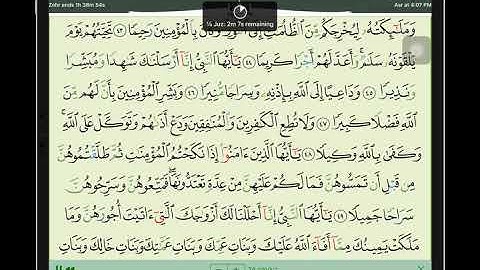 Zohr ends 1h 38m 54s
Asr at 4:07 PM
¼ Juz: 2m 7s remaining
وَمَلَٰٓئِكَتُهُۥ لِيُخْرِجَكُم مِّنَ ٱلظُّلُمَٰتِ إِلَى ٱلنُّورِ وَكَانَ بِٱلْمُؤْمِنِينَ رَحِيمًا ٤٣ تَحِيَّتُهُمْ يَوْمَ
يَلْقَوْنَهُۥ سَلَٰمٌ وَأَعَدَّ لَهُمْ أَجْرًا كَرِيمًا ٤٤ يَٰٓأَيُّهَا ٱلنَّبِىُّ إِنَّآ أَرْسَلْنَٰكَ شَٰهِدًا وَمُبَشِّرًا
وَنَذِيرًا ٤٥ وَدَاعِيًا إِلَى ٱللَّهِ بِإِذْنِهِۦ وَسِرَاجًا مُّنِيرًا ٤٦ وَبَشِّرِ ٱلْمُؤْمِنِينَ بِأَنَّ لَهُم مِّنَ
ٱللَّهِ فَضْلًا كَبِيرًا ٤٧ وَلَا تُطِعِ ٱلْكَٰفِرِينَ وَٱلْمُنَٰفِقِينَ وَدَعْ أَذَىٰهُمْ وَتَوَكَّلْ عَلَى ٱللَّهِ
وَكَفَىٰ بِٱللَّهِ وَكِيلًا ٤٨ يَٰٓأَيُّهَا ٱلَّذِينَ ءَامَنُوٓا۟ إِذَا نَكَحْتُمُ ٱلْمُؤْمِنَٰتِ ثُمَّ طَلَّقْتُمُوهُنَّ
مِن قَبْلِ أَن تَمَسُّوهُنَّ فَمَا لَكُمْ عَلَيْهِنَّ مِنْ عِدَّةٍ تَعْتَدُّونَهَا فَمَتِّعُوهُنَّ وَسَرِّحُوهُنَّ
سَرَاحًا جَمِيلًا ٤٩ يَٰٓأَيُّهَا ٱلنَّبِىُّ إِنَّآ أَحْلَلْنَا لَكَ أَزْوَٰجَكَ ٱلَّٰتِىٓ ءَاتَيْتَ أُجُورَهُنَّ وَمَا
مَلَكَتْ يَمِينُكَ مِمَّآ أَفَآءَ ٱللَّهُ عَلَيْكَ وَبَنَاتِ عَمِّكَ وَبَنَاتِ عَمَّٰتِكَ وَبَنَاتِ خَالِكَ وَبَنَاتِ